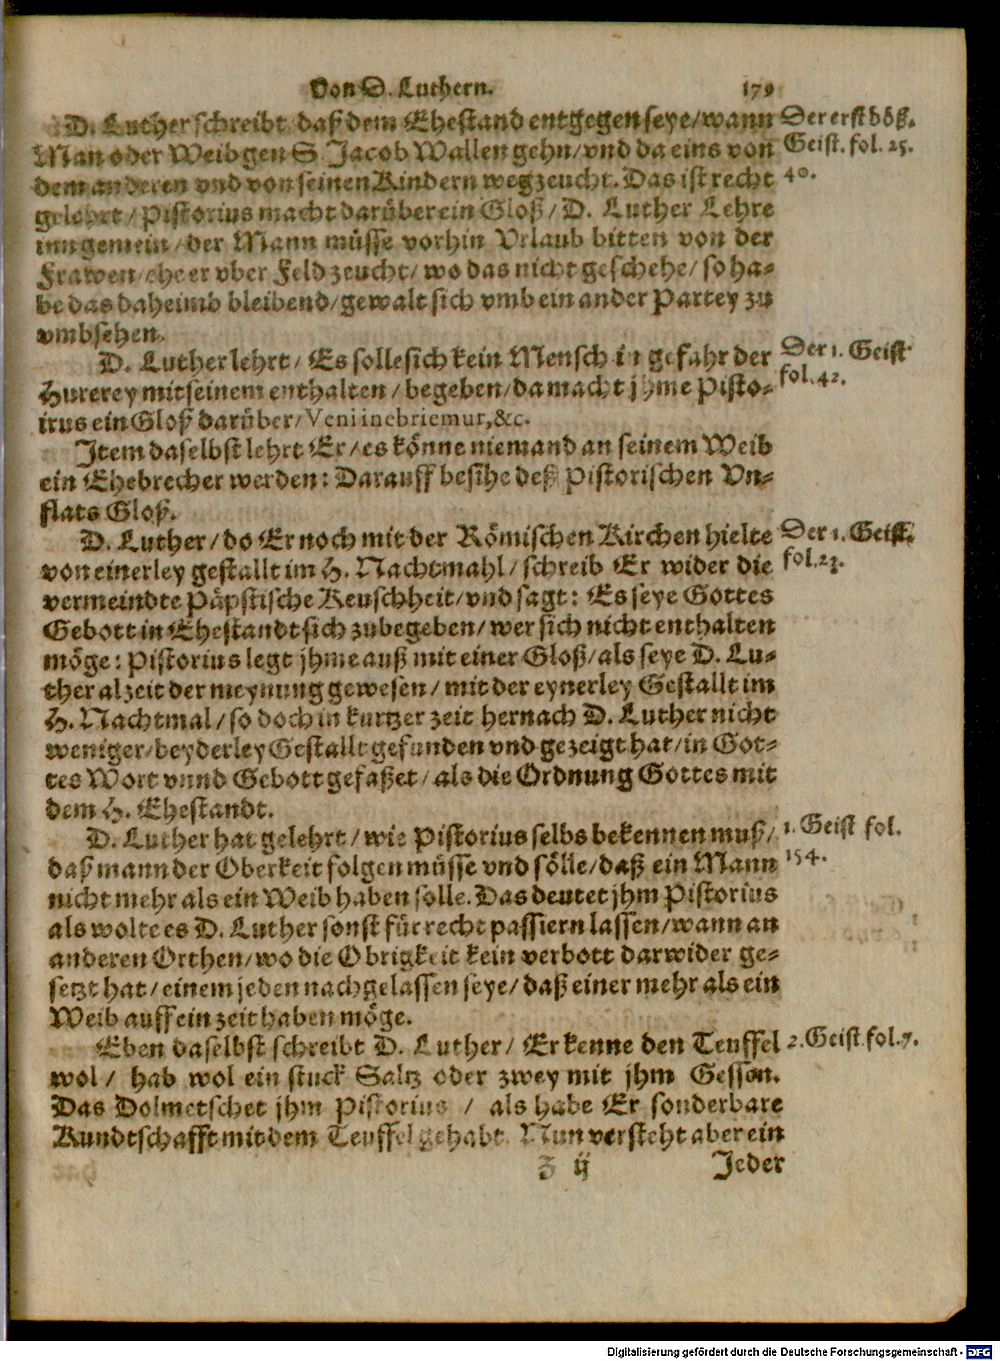 Von D. Luthern. 179
D. Luther schreibt / daß dem Ehestand entgegen seye / wann
Man oder Weib gen S. Jacob Wallen gehn / vnd da eins von
dem anderen vnd von seinen Kindern weg zeucht. Das ist recht
gelehrt / Pistorius macht darüber ein Gloß / D. Luther Lehre
inn gemein / der Mann müsse vorhin Vrlaub bitten von der
Frawen / ehe er vber Feld zeucht / wo das nicht geschehe / so ha-
be das daheimb bleibend / gewalt sich vmb ein ander Partey zu
vmbsehen.
Der erst böß.
Geist. fol. 25.
40.
D. Luther lehrt / Es solle sich kein Mensch in gefahr der
Hurerey mit seinem enthalten / begeben / da macht jhme Pisto-
irus ein Gloß darüber / Veni inebriemur, &c.
Der 1. Geist
fol. 42.
Item daselbst lehrt Er / es könne niemand an seinem Weib
ein Ehebrecher werden: Darauff besihe deß Pistorischen Vn-
flats Gloß.
D. Luther / do Er noch mit der Römischen Kirchen hielte
von einerley gestallt im H. Nachtmahl / schreib Er wider die
vermeindte Päpstische Keuschheit / vnd sagt: Es seye Gottes
Gebott in Ehestandt sich zubegeben / wer sich nicht enthalten
möge: Pistorius legt jhme auß mit einer Gloß / als seye D. Lu-
ther alzeit der meynung gewesen / mit der eynerley Gestallt im
H. Nachtmal / so doch in kurtzer zeit hernach D. Luther nicht
weniger / beyderley Gestallt gefunden vnd gezeigt hat / in Got-
tes Wort vnnd Gebott gefaßet / als die Ordnung Gottes mit
dem H. Ehestandt.
Der 1. Geist.
fol. 23.
D. Luther hat gelehrt / wie Pistorius selbs bekennen muß /
daß mann der Oberkeit folgen müsse vnd sölle / daß ein Mann
nicht mehr als ein Weib haben solle. Das deutet jhm Pistorius
als wolte es D. Luther sonst für recht passiern lassen / wann an
anderen Orthen / wo die Obrigkeit kein verbott darwider ge-
setzt hat / einem jeden nachgelassen seye / daß einer mehr als ein
Weib auff ein zeit haben möge.
1. Geist fol.
154.
Eben daselbst schreibt D. Luther / Er kenne den Teuffel
wol / hab wol ein stuck Saltz oder zwey mit jhm Gessen.
Das Dolmetschet jhm Pistorius / als habe Er sonderbare
Kundtschafft mit dem Teuffel gehabt. Nun versteht aber ein
2. Geist fol. 7.
Z ij Jeder
Digitalisierung gefördert durch die Deutsche Forschungsgemeinschaft - DFG